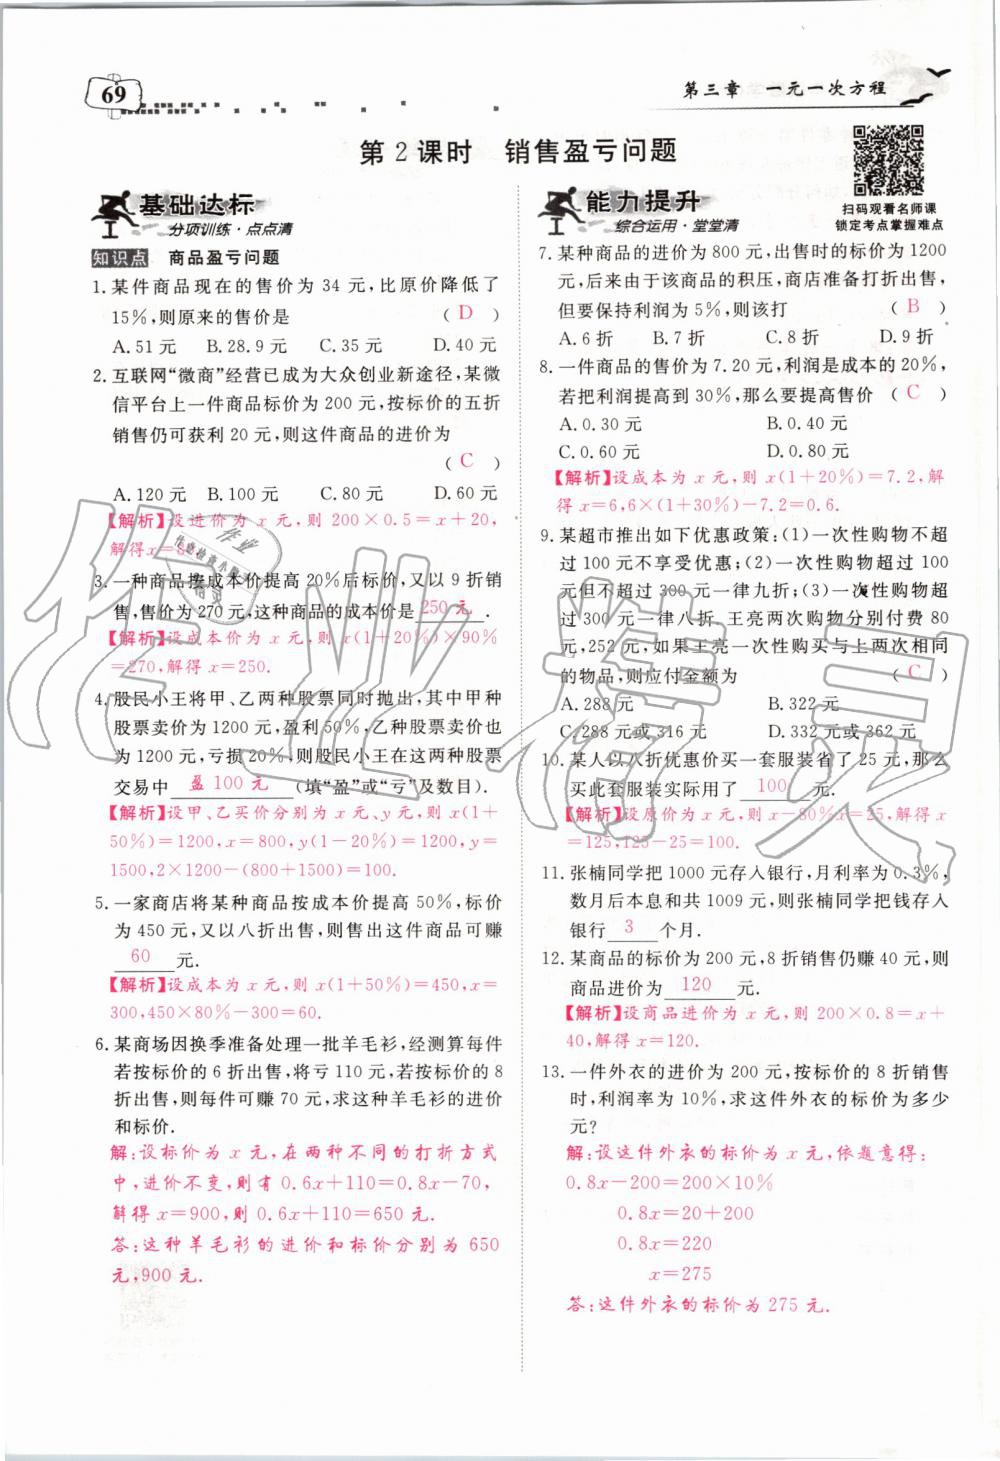 69
第三章 一元一次方程
第 2 课时 销售盈亏问题
基础达标
分项训练·点点清
知识点 商品盈亏问题
1. 某件商品现在的售价为 34 元,比原价降低了
15%,则原来的售价是 ( D )
A. 51 元 B. 28.9 元 C. 35 元 D. 40 元
2. 互联网“微商”经营已成为大众创业新途径,某微
信平台上一件商品标价为 200 元,按标价的五折
销售仍可获利 20 元,则这件商品的进价为
( C )
A. 120 元 B. 100 元 C. 80 元 D. 60 元
【解析】设进价为 x 元,则 200×0.5=x+20,
解得x=8
3. 一种商品按成本价提高 20%后标价,又以 9 折销
售,售价为 270 元,这种商品的成本价是 250 元 .
【解析】设成本价为 x 元,则 x(1+20%)×90%
=270,解得 x=250.
4. 股民小王将甲、乙两种股票同时抛出,其中甲种
股票卖价为 1200 元,盈利 50%,乙种股票卖价也
为 1200 元,亏损 20%,则股民小王在这两种股票
交易中 盈 100 元 (填“盈”或“亏”及数目).
【解析】设甲、乙买价分别为 x 元、y 元,则 x(1+
50%)=1200,x=800,y(1-20%)=1200,y=
1500,2×1200-(800+1500)=100.
5. 一家商店将某种商品按成本价提高 50%,标价
为 450 元,又以八折出售,则售出这件商品可赚
60 元.
【解析】设成本为 x 元,则 x(1+50%)=450,x=
300,450×80%-300=60.
6. 某商场因换季准备处理一批羊毛衫,经测算每件
若按标价的 6 折出售,将亏 110 元,若按标价的 8
折出售,则每件可赚 70 元,求这种羊毛衫的进价
和标价.
解:设标价为 x 元,在两种不同的打折方式
中,进价不变,则有 0.6x+110=0.8x-70,
解得 x=900,则 0.6x+110=650 元.
答:这种羊毛衫的进价和标价分别为 650
元,900 元.
能力提升
综合运用·堂堂清
扫码观看名师课
锁定考点掌握难点
7. 某种商品的进价为 800 元,出售时的标价为 1200
元,后来由于该商品的积压,商店准备打折出售,
但要保持利润为 5%,则该打 ( B )
A. 6 折 B. 7 折 C. 8 折 D. 9 折
8. 一件商品的售价为 7.20 元,利润是成本的 20%,
若把利润提高到 30%,那么要提高售价 ( C )
A. 0.30 元 B. 0.40 元
C. 0.60 元 D. 0.80 元
【解析】设成本为 x 元,则 x(1+20%)=7.2,解
得 x=6,6×(1+30%)-7.2=0.6.
9. 某超市推出如下优惠政策:(1)一次性购物不超
过 100 元不享受优惠;(2)一次性购物超过 100
元但不超过 300 元一律九折;(3)一次性购物超
过 300 元一律八折. 王亮两次购物分别付费 80
元,252 元,如果王亮一次性购买与上两次相同
的物品,则应付金额为 ( C )
A. 288 元 B. 322 元
C. 288 元或 316 元 D. 332 元或 362 元
10. 某人以八折优惠价买一套服装省了 25 元,那么
买此套服装实际用了 100 元.
【解析】设原价为 x 元,则 x-80%x=25,解得 x
=125,125-25=100.
11. 张楠同学把 1000 元存入银行,月利率为 0.3%,
数月后本息和共 1009 元,则张楠同学把钱存入
银行 3 个月.
12. 某商品的标价为 200 元,8 折销售仍赚 40 元,则
商品进价为 120 元.
【解析】设商品进价为 x 元,则 200×0.8=x+
40,解得 x=120.
13. 一件外衣的进价为 200 元,按标价的 8 折销售
时,利润率为 10%,求这件外衣的标价为多少
元?
解:设这件外衣的标价为 x 元,依题意得:
0.8x-200=200×10%
0.8x=20+200
0.8x=220
x=275
答:这件外衣的标价为 275 元.
作业精灵